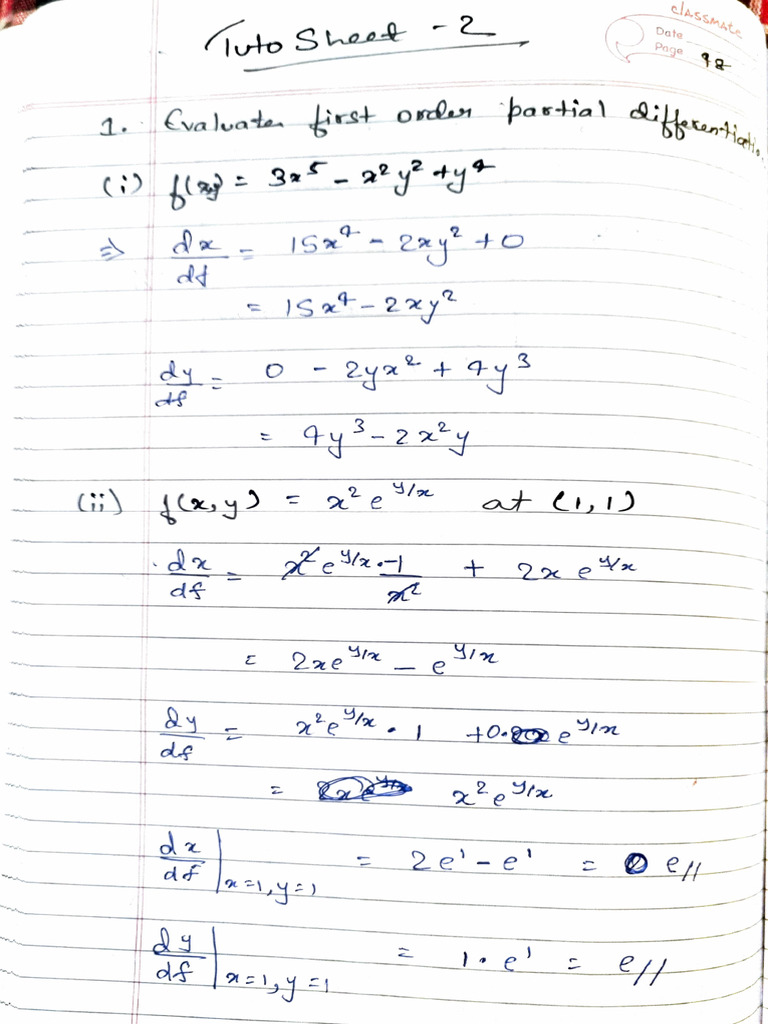 Tuto Sheet - 2
classmate
Date
Page 98
1. Evaluate first order partial differentiation.
(i) f(xy) = 3x⁵ - x²y² + y⁴
⇒ dx/df = 15x⁴ - 2xy² + 0
= 15x⁴ - 2xy²
dy/df = 0 - 2yx² + 4y³
= 4y³ - 2x²y
(ii) f(x,y) = x² e^y/x at (1,1)
dx/df = x² e^y/x · -1/x² + 2x e^y/x
= 2xe^y/x - e^y/x
dy/df = x² e^y/x · 1 + 0· e^y/x
= x² e^y/x
dx/df |x=1, y=1 = 2e¹ - e¹ = e//
dy/df |x=1, y=1 = 1 · e¹ = e//